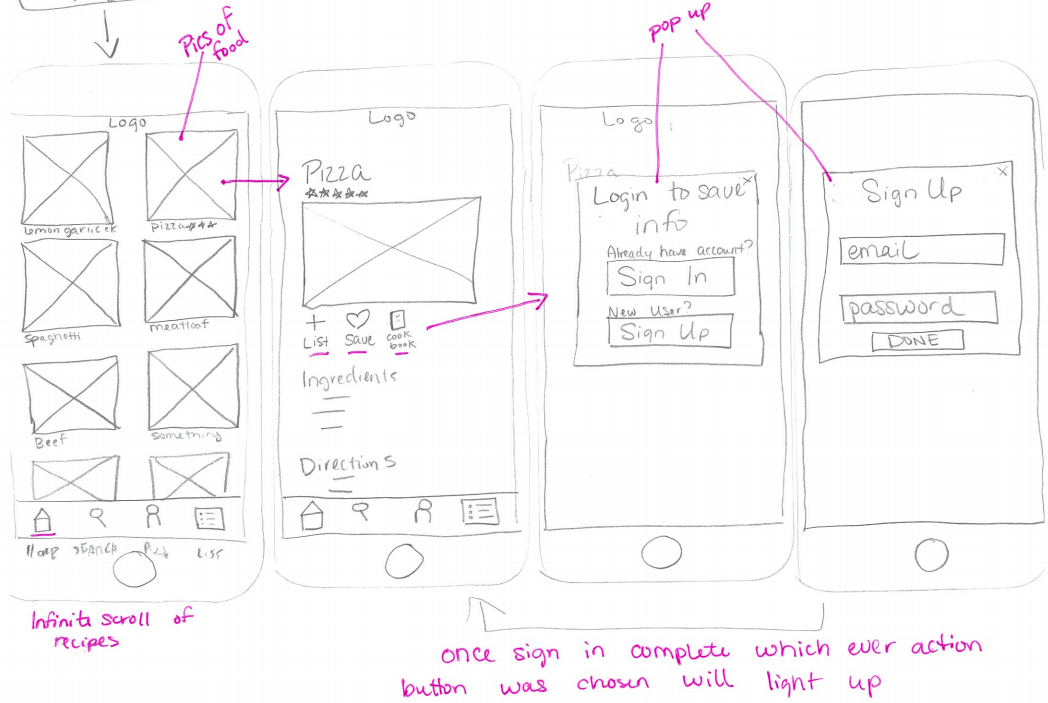 Pics of
food
pop up
Logo
lemon garlic ck
pizza
spaghetti
meatloaf
Beef
something
Home
SEARCH
LIST
Infinite scroll of
recipes
Logo
Pizza
+
List
Save
cook
book
Ingredients
Directions
Logo
Pizza
x
Login to save
info
Already have account?
Sign In
New User?
Sign Up
x
Sign Up
email
password
DONE
once sign in complete which ever action
button was chosen will light up